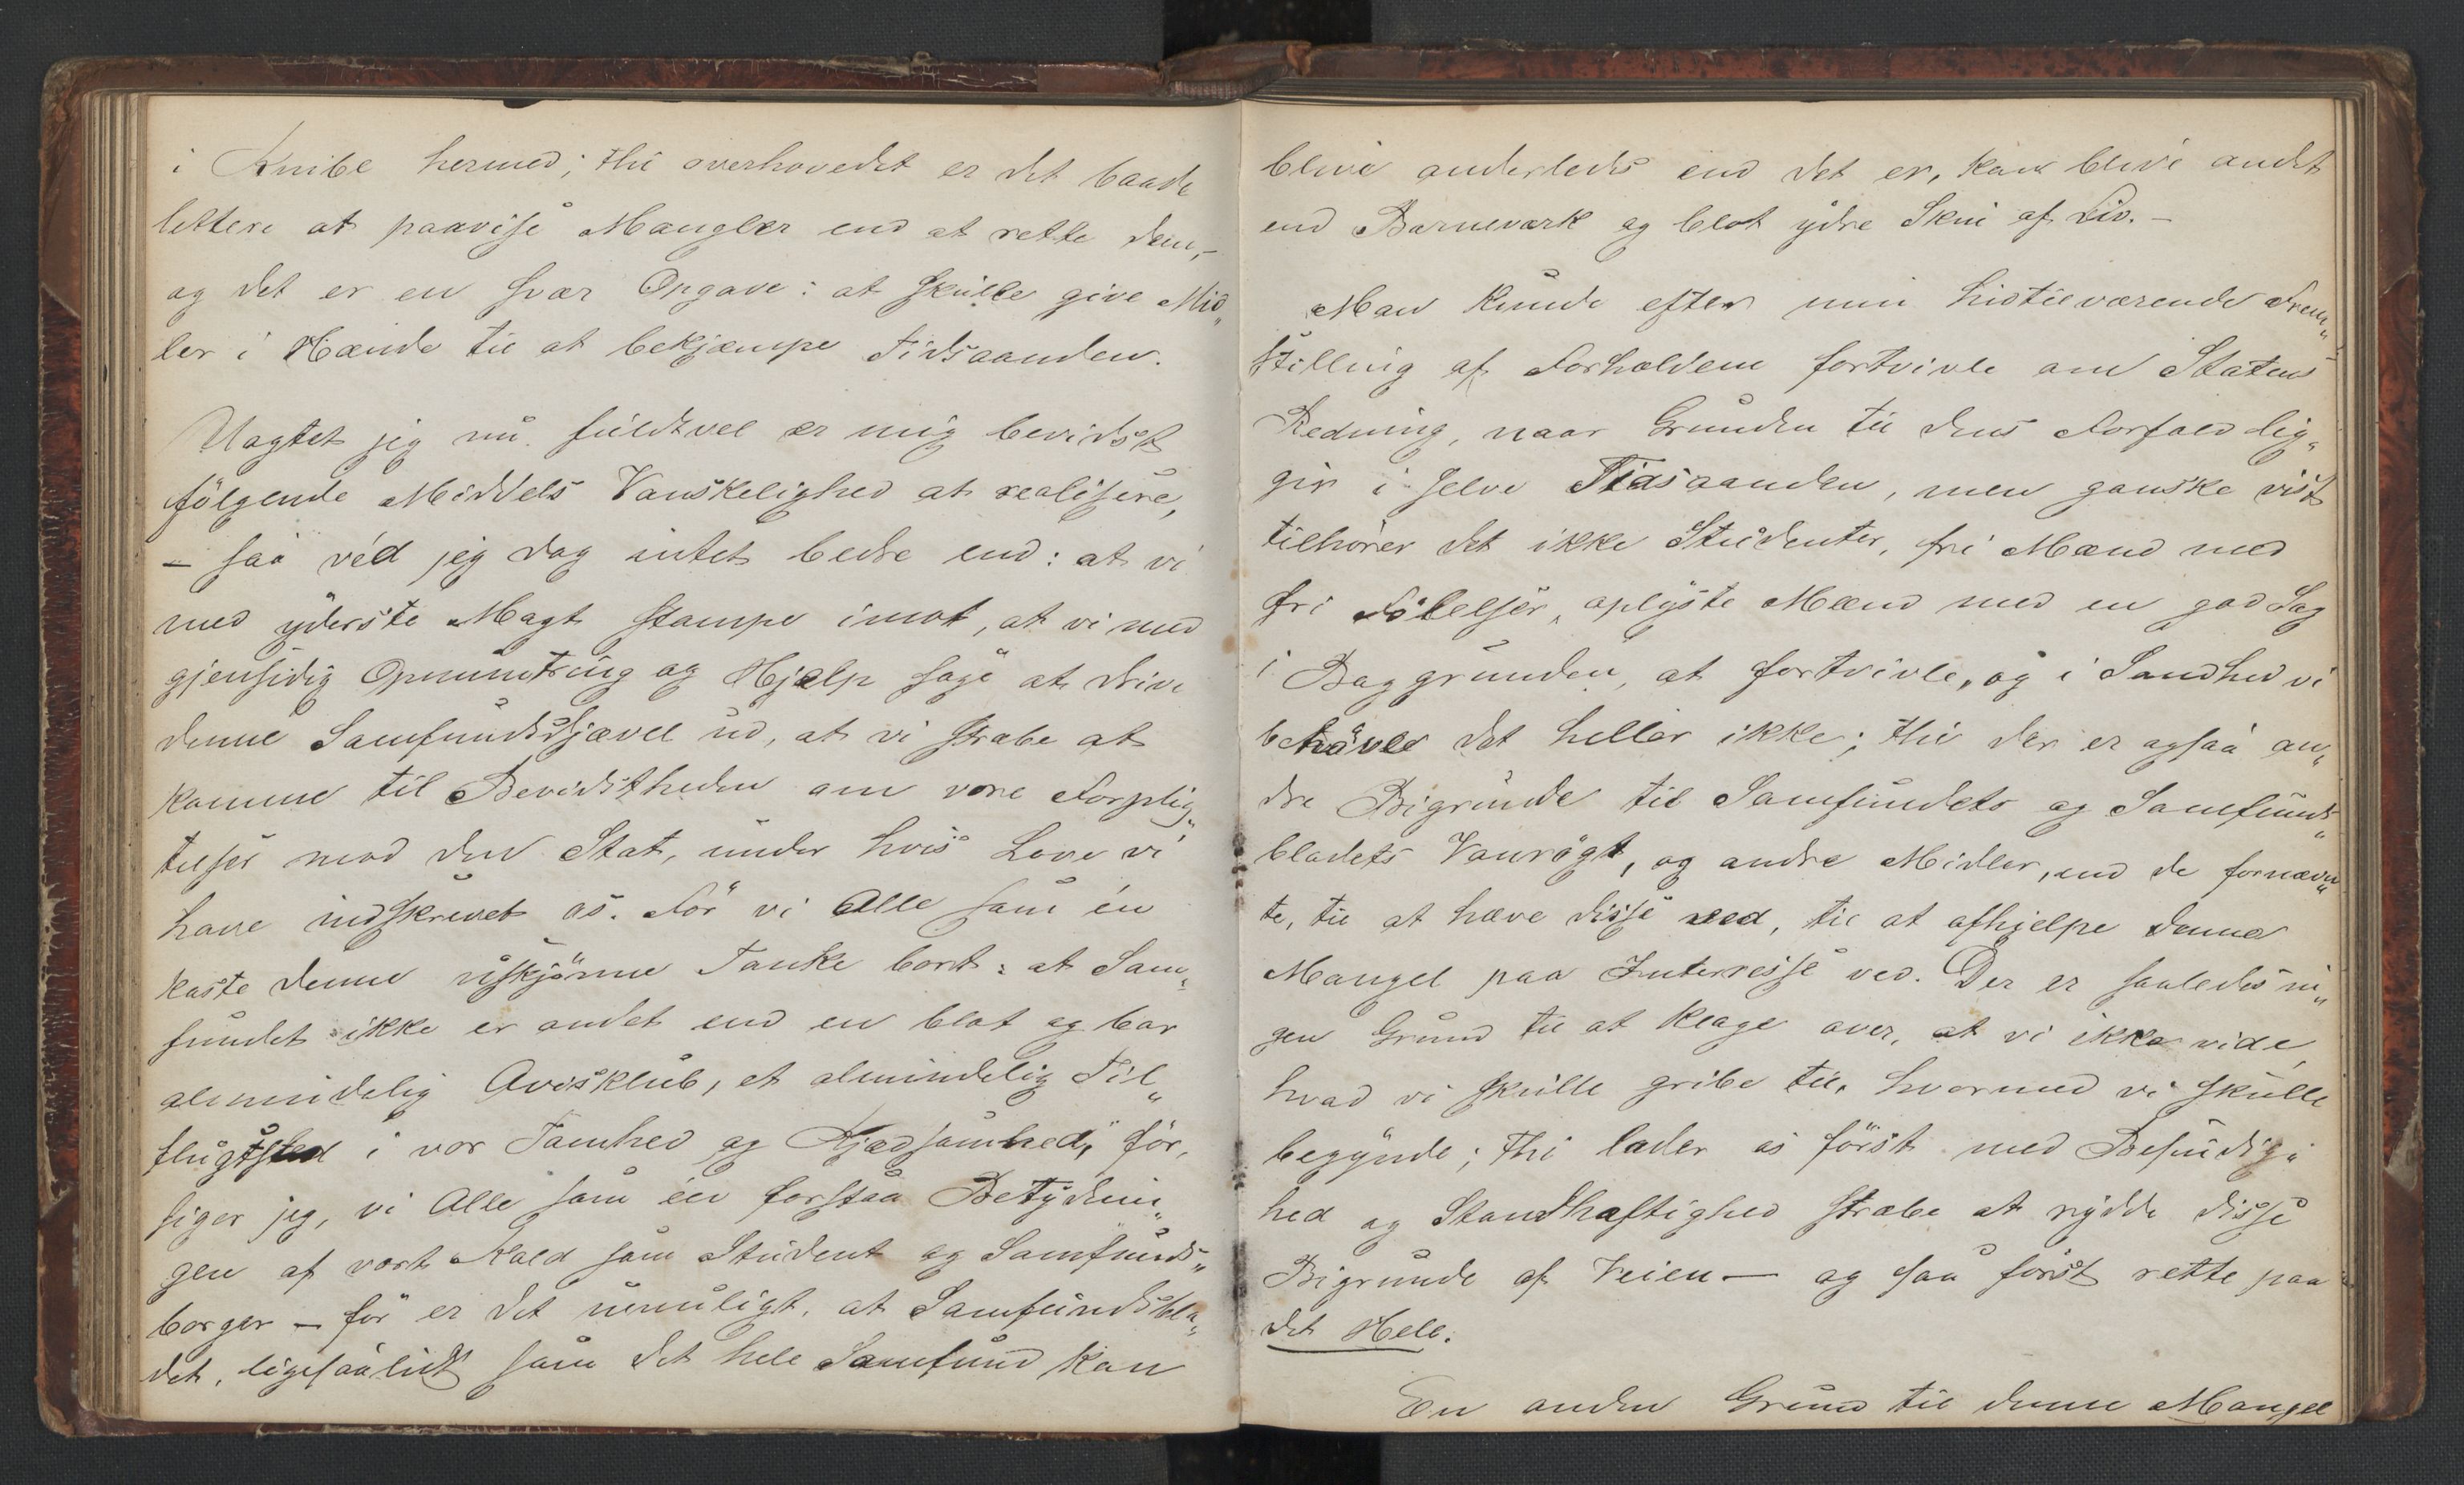 i Knibe hermed; thi overhovedet er det baade
lettere at paavise Mangler end at rette dem,-
og det er en svær Opgave: at skulle give Mid„
ler i Hænde til at bekjæmpe Tidsaanden.
Uagtet jeg nu fuldtvel er mig bevidst
følgende Middels Vanskelighed at realisere,
- saa véd jeg dog intet bedre end: at vi
med yderste Magt stampe imot, at vi med
gjensidig Opmuntring og Hjælp søge at drive
denne Samfundsdjævel ud, at vi stræbe at
komme til Bevidstheden om vore Forplig„
telser mod den Stat, under hvis Love vi
have indskrevet os. Før vi Alle som én
kaste denne uskjønne Tanke bort: at Sam„
fundet ikke er andet end en blot og bar
almindelig Avisklub, et almindelig Til„
flugtsted i vor Tamhed og Kjedsomhed, før,
siger jeg, vi Alle som én forstaa Betydnin„
gen af vort Kald som Student og Samfunds„
borger - før er det umuligt, at Samfundsbla„
det, ligesaalidt som det hele Samfund kan
blive anderledes end det er, kan blive andet
end Barneværk og blot ydre Skin af Liv. -
Man kunde efter min hidtilværende Frem„
stilling af Forholdene fortvivle om Statens
Redning, naar Grunden til dens Forfald lig„
ger i selve Tidsaanden, men ganske vist
tilhører det ikke Studenter, fri Mænd med
fri Følelser, oplyste Mænd med en god Sag
i Baggrunden, at fortvivle, og i Sandhed vi
behøve det heller ikke; thi der er ogsaa an„
dre Bigrunde til Samfundets og Samfunds„
bladets Vanrøgt, og andre Midler, end de fornævn„
te, til at hæve disse ved, til at afhjelpe denne
Mangel paa Interresse ved. Der er saaledes in„
gen Grund til at klage over, at vi ikke vide,
hvad vi skulle gribe til, hvormed vi skulle
begynde; thi lader os først med Besindig„
hed og Standhaftighed stræbe at rydde disse
Bigrunde af Veien — og saa først rette paa
det Hele.
En anden Grund til denne Mangel